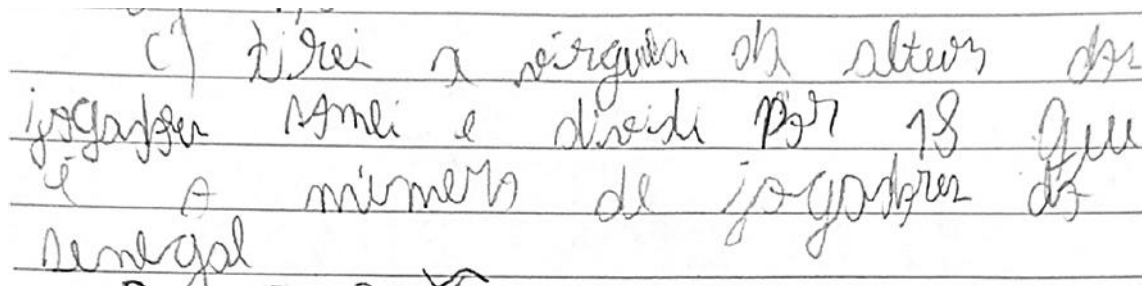 c) tirei a virgula da altura dos
jogadores somei e dividi por 18 que
é o número de jogadores do
senegal